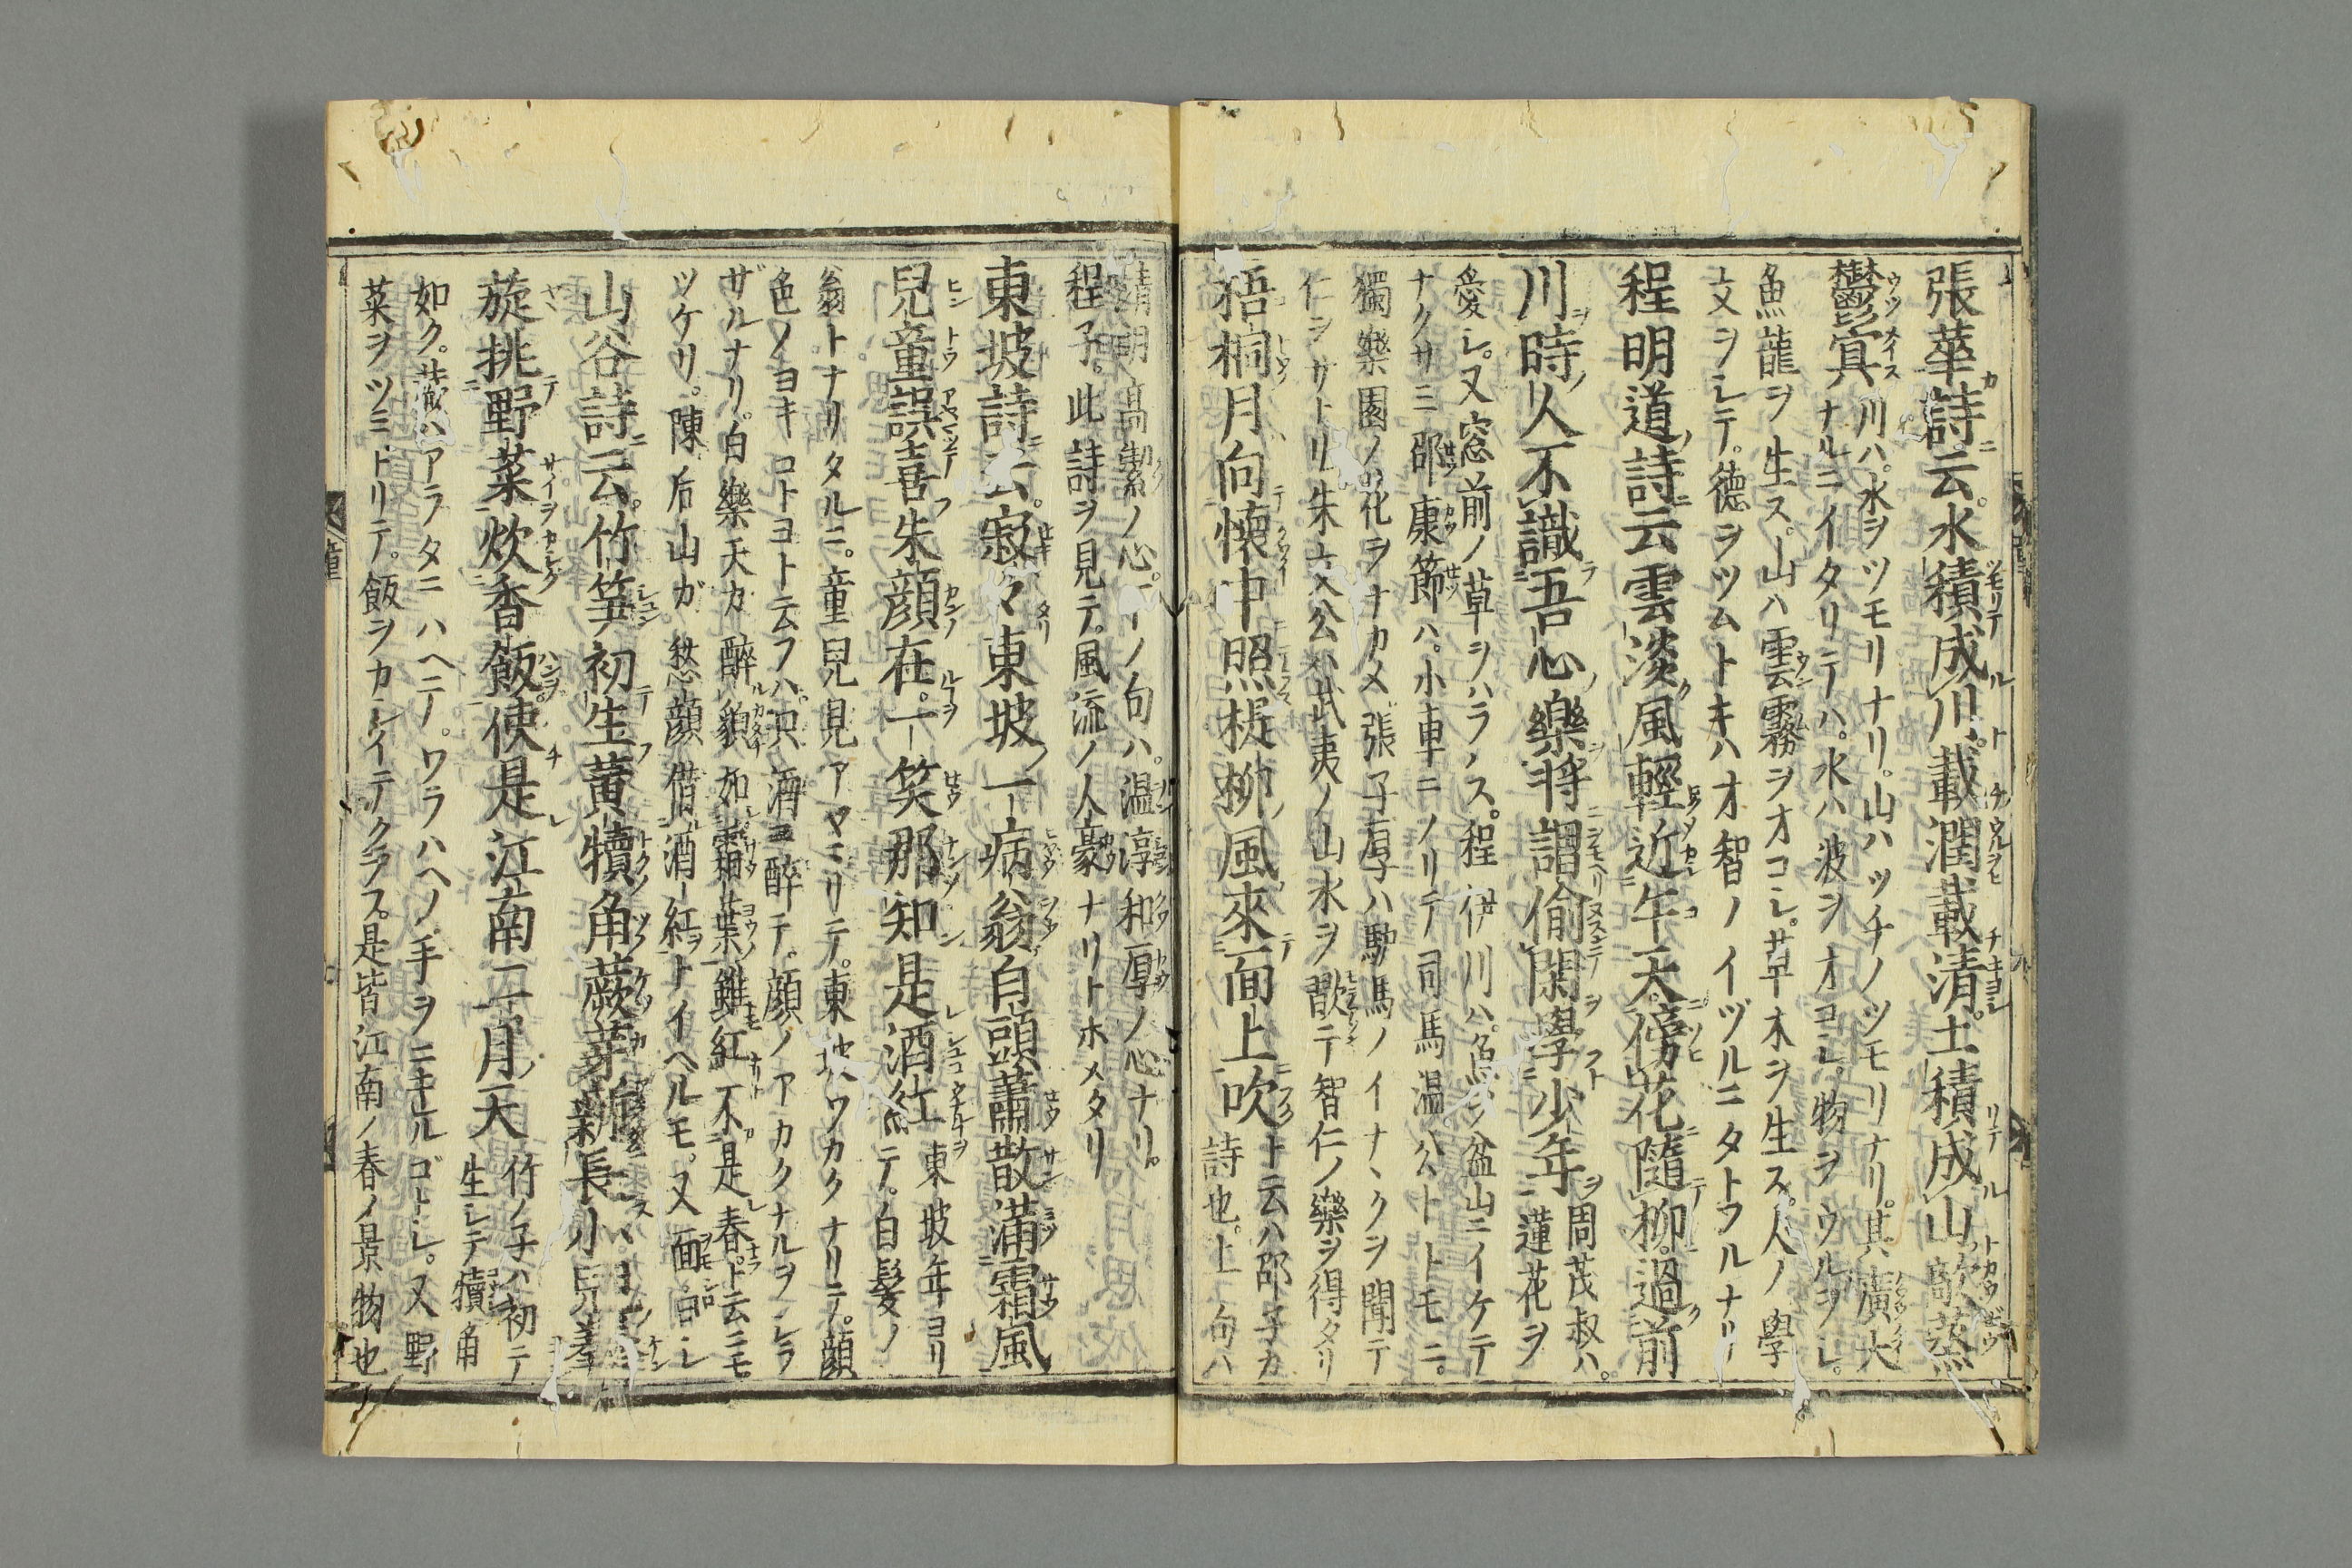 張華詩云水積成川載瀾載清土積成山歊蒸
鬱冥川ハ水ヲツモリナリ山ハツチノツモリナリ其廣大
ナルニイタリテハ水ハ波ヲオコシ物ヲウルヲシ
魚龍ヲ生ス山ハ雲霧ヲオコシ草木ヲ生ス人ノ學
文ヲシテ德ヲツムトキハオ智ノイヅルニタトフルナリ
程明道詩云雲淡風輕近午天傍花隨柳過前
川時人不識吾心樂將謂偷閑學少年周茂叔ハ
蓮花ヲ
愛シ又窓前ノ草ヲハラハス程伊川ハ魚ヲ盆山ニイケテ
ナクサミ邵康節ハ小車ニノリテ司馬温公トトモニ
獨樂園ノ花ヲナカメ張子厚ハ驢馬ノイナヽクヲ聞テ
仁ヲサトリ朱文公ハ武夷ノ山水ヲ歡テ智仁ノ樂ヲ得タリ
梧桐月向懷中照楊柳風來面上吹ト云ハ邵子カ
詩也上句ハ
清明高潔ノ心下ノ句ハ温淳和厚ノ心ナリ
程子此詩ヲ見テ風流ノ人豪ナリトホメタリ
東坡詩云寂々東坡一病翁白頭蕭散滿霜風
兒童誤喜朱顏在一笑那知是酒紅東坡年ヨリ
テ白髮ノ
翁トナリタルニ童兒見アヤマリテ東坡ワカクナリテ顔
色ノヨキコトヨト云フハ只酒ヨ醉テ顔ノアカクナルヲシラ
ザルナリ白樂天カ醉貌如霜葉雖紅不是春ト云ニモ
ツケリ陳后山ガ愁顔借酒紅トイヘルモ又面白シ
山谷詩云竹笋初生黄犢角蕨芽新長小兒拳
旋挑野菜炊香飯便是江南二月天竹ノ子ハ初テ
生シテ犢角
如ク蕨ハアラタニハヘテワラハヘノ手ヲニキルゴトシ又野
菜ヲツミトリテ飯ヲカシイテクラス是皆江南ノ春ノ景物也